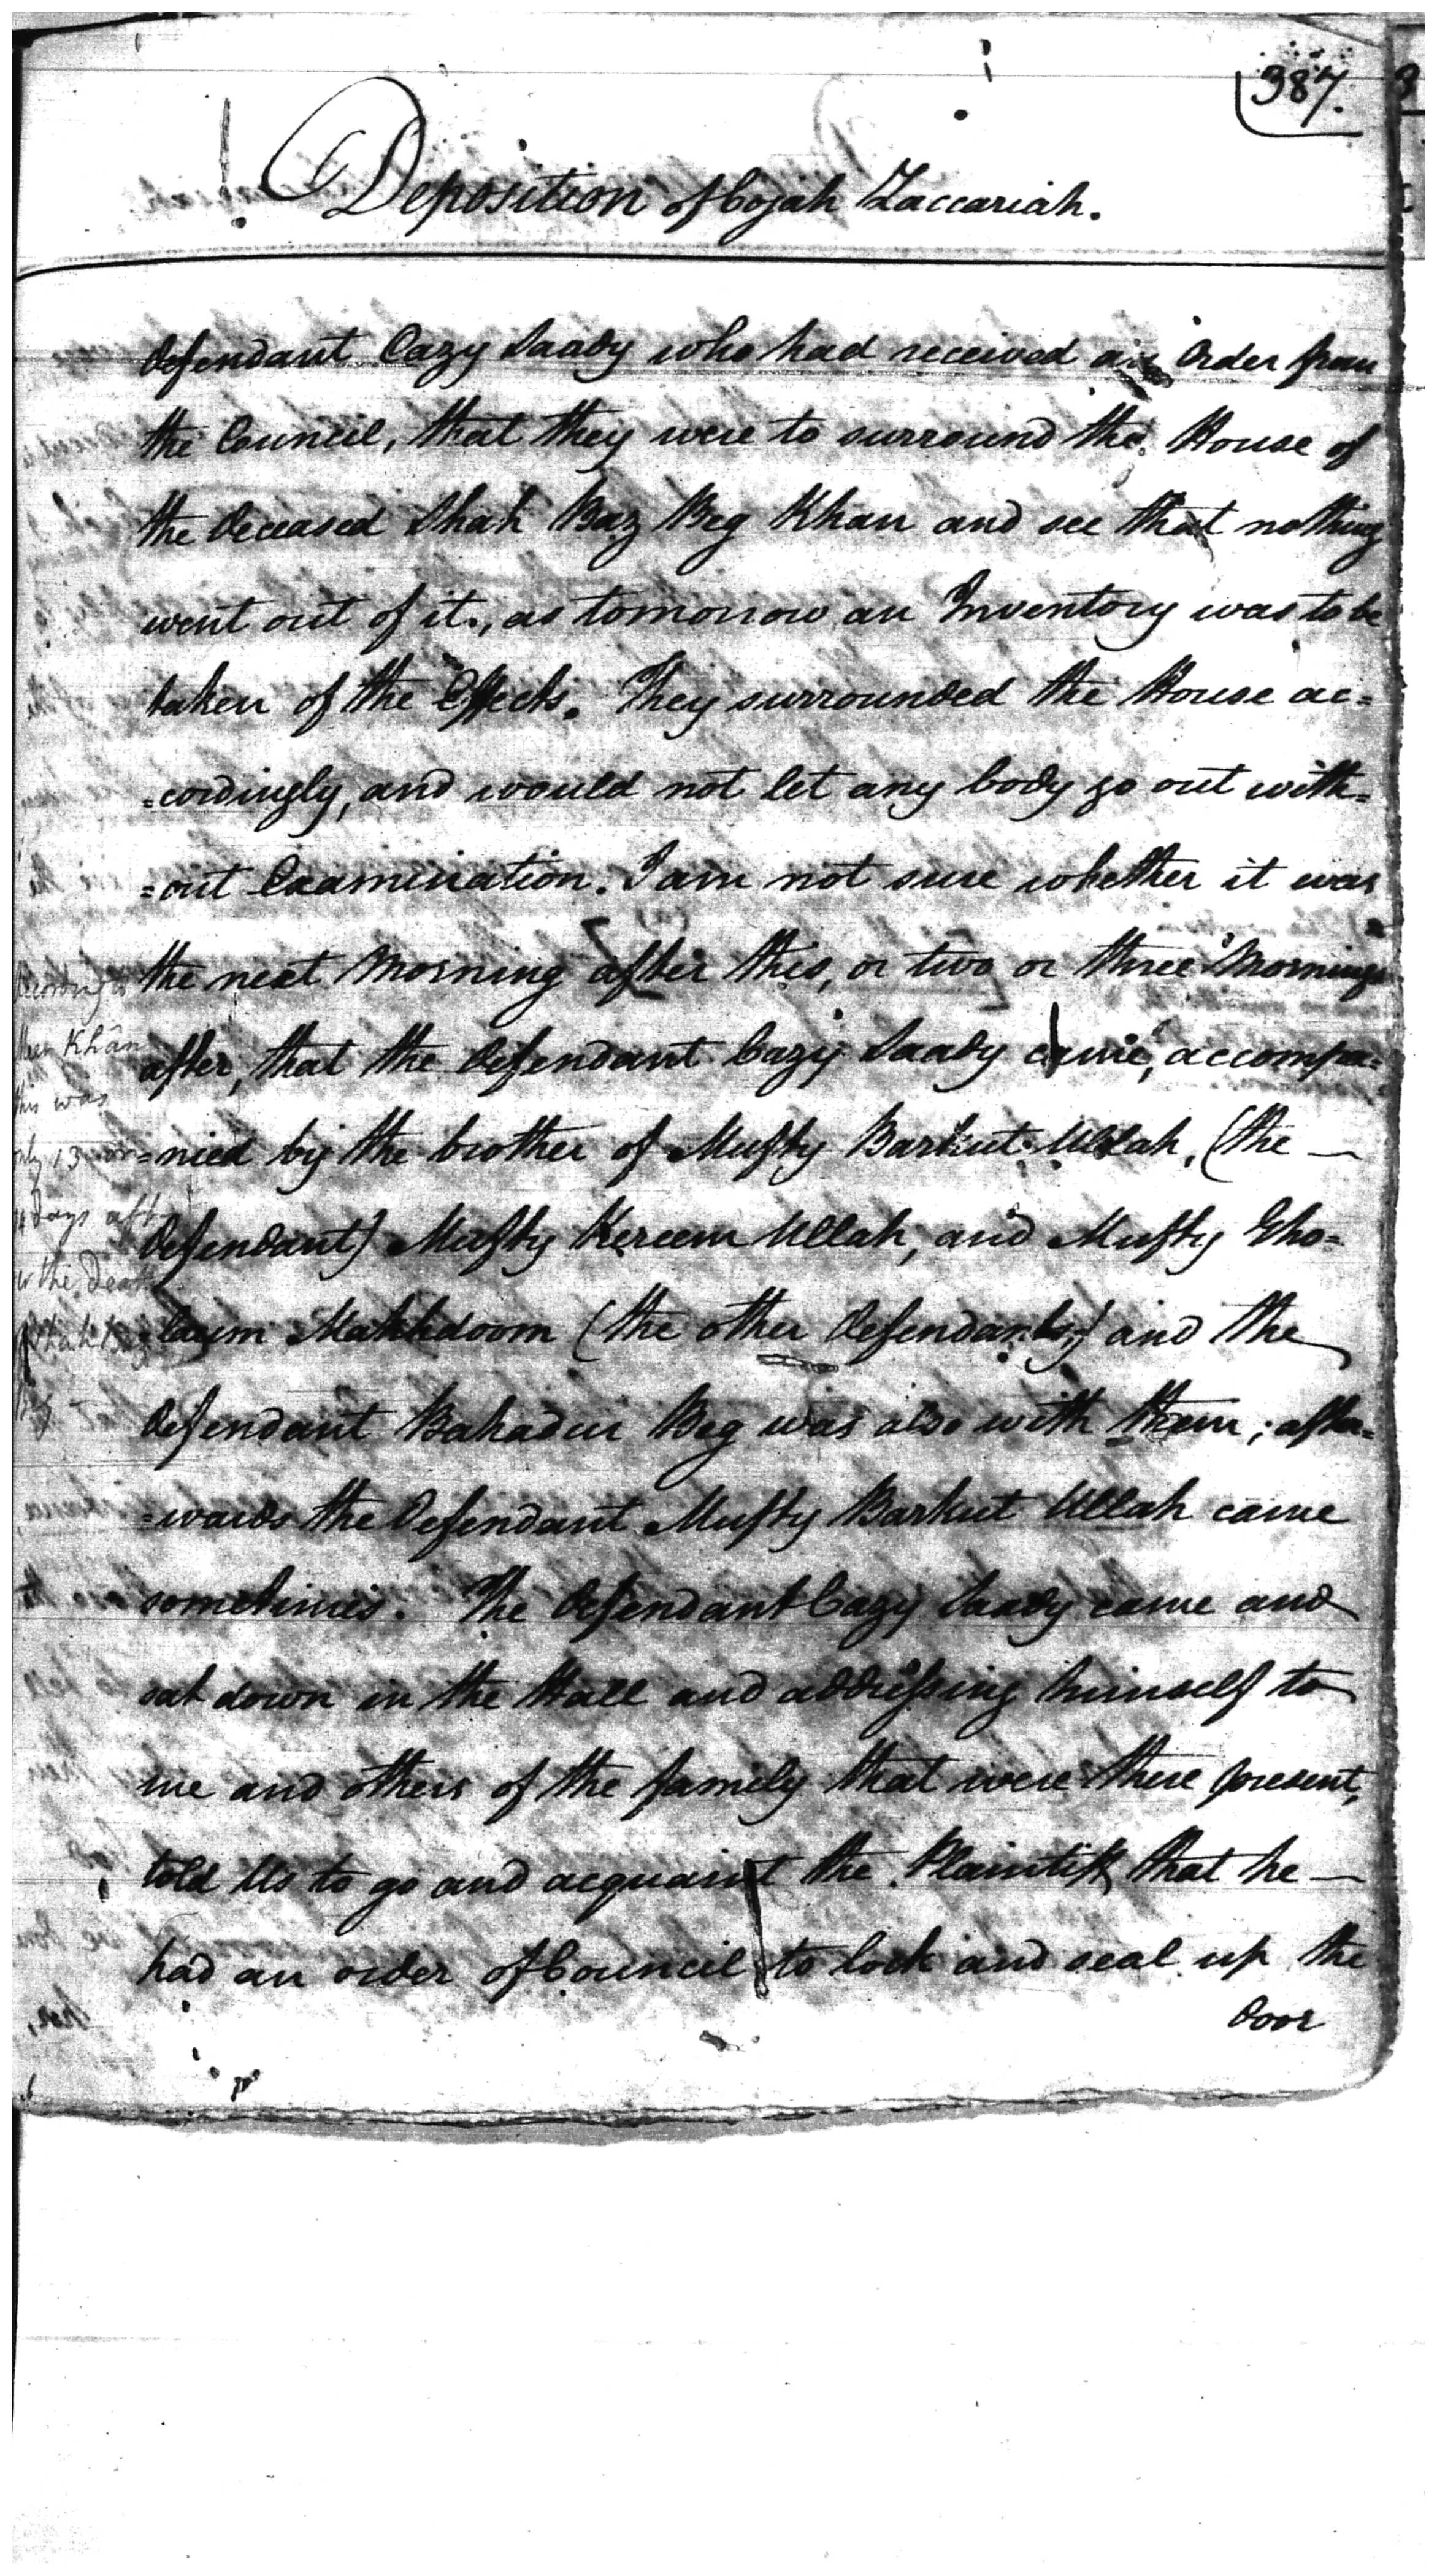 387.
Deposition of Cojah Zaccariah.
defendant Cazy Saady who had received an Order from
the Council, that they were to surround the House of
the deceased Shah Baz Beg Khan and see that nothing
went out of it, as tomorrow an Inventory was to be
taken of the Effects. They surrounded the House ac=
=cordingly, and would not let any body go out with=
=out Examination. I am not sure whether it was
the next Morning after this, or two or three Mornings
after, that the defendant Cazy Saady came, accompa=
=nied by the brother of Mufty Barkut Ullah, (the —
defendant) Mufty Kereem Ullah, and Mufty Gho=
=laum Makhdoom (the other defendants,) and the
defendant Bahadur Beg was also with them; after=
=wards the defendant Mufty Barkut Ullah came
sometimes. The defendant Cazy Saady came and
sat down in the Hall and addressing himself to
me and others of the family that were there present,
told Us to go and acquaint the Plaintiff, that he —
had an order of Council to lock and seal up the
door
Khan
this was
13
days aft
the death